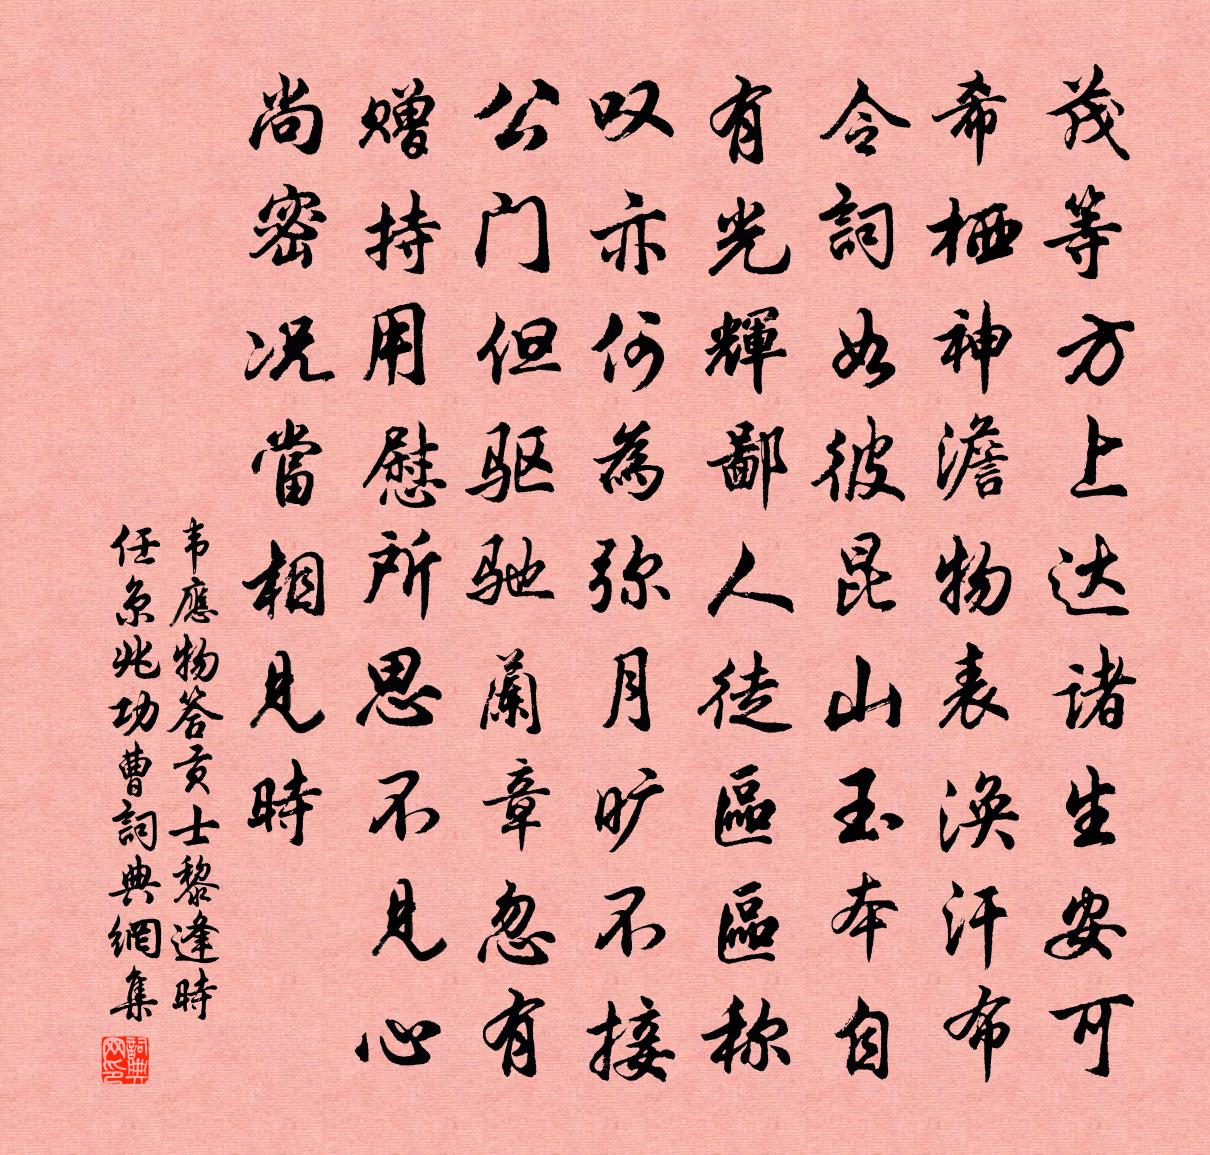 茂等方上达诸生安可
希栖神澹物表涣汗布
令詞如彼昆山玉本自
有光輝鄙人徒區區称
叹亦何為弥月旷不接
公门但驱驰蘭章忽有
赠持用慰所思不見心
尚密况當相見時
韦應物答贡士黎逢時
任京兆功曹詞典網集
詞典
网印